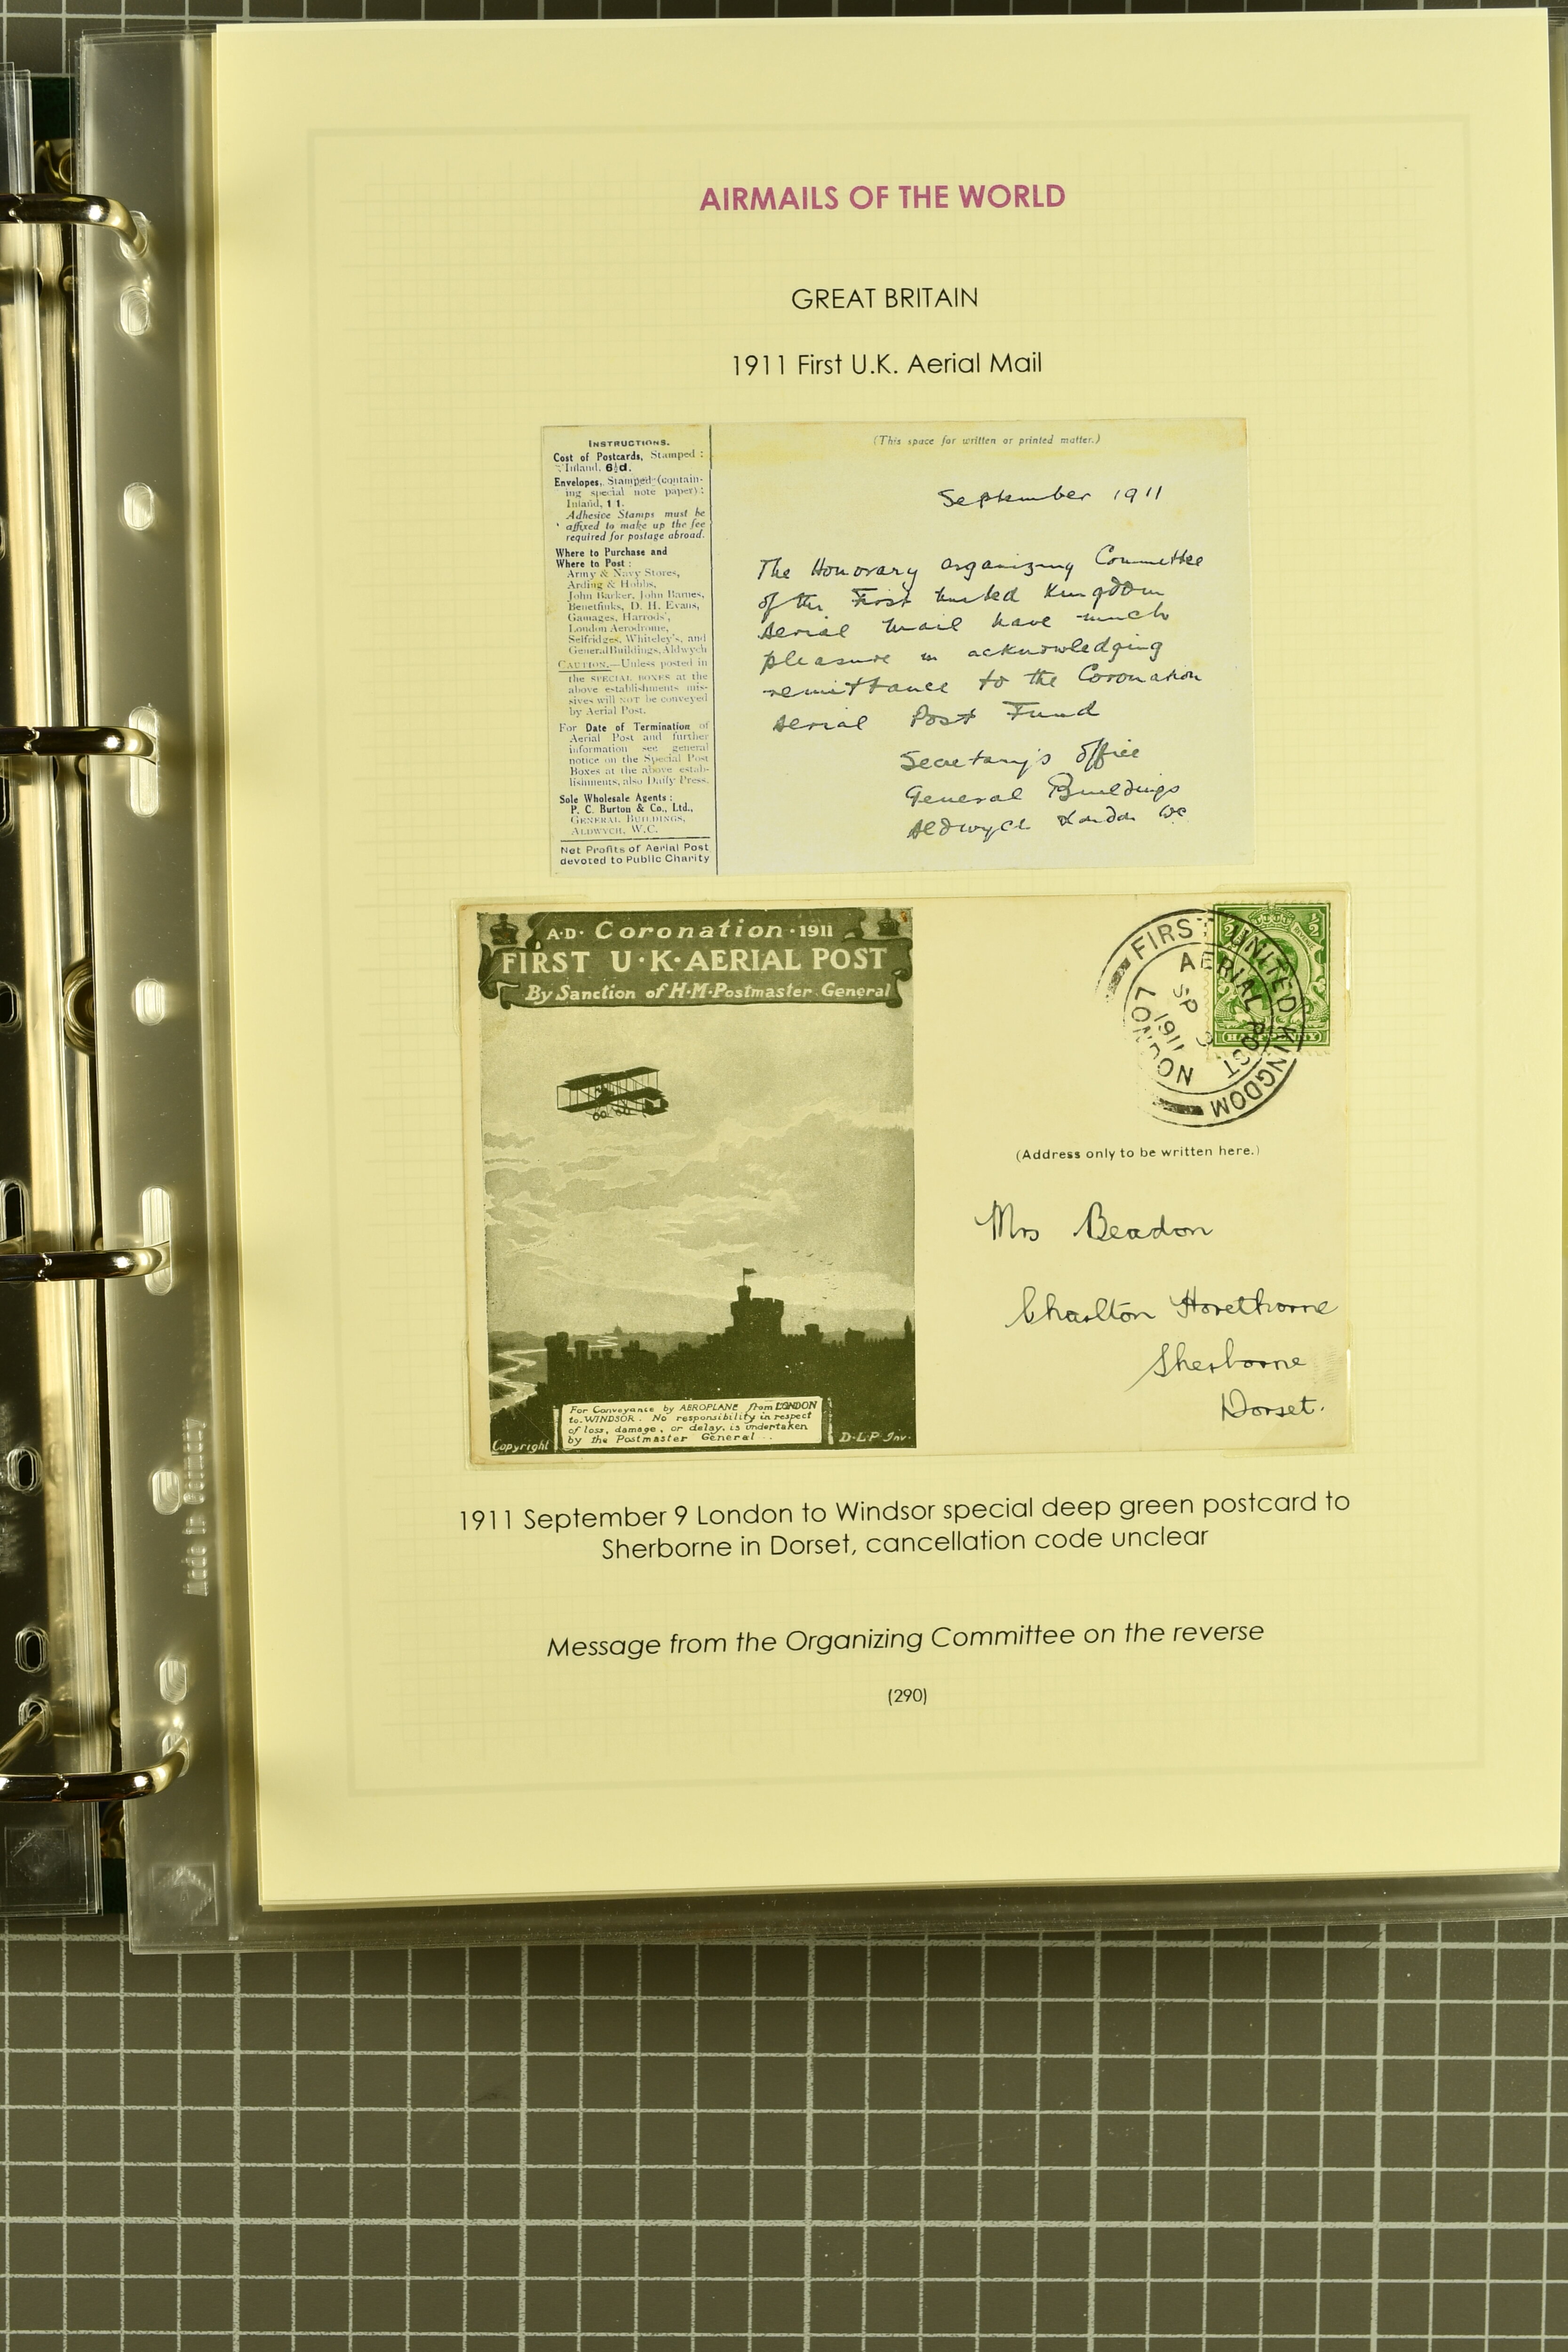 AIRMAILS OF THE WORLD
GREAT BRITAIN
1911 First U.K. Aerial Mail
INSTRUCTIONS.
Cost of Postcards, Stamped :
Inland, 6½d.
Envelopes, Stamped (contain-
ing special note paper) :
Inland, 1/1.
Adhesive Stamps must be
affixed to make up the fee
required for postage abroad.
Where to Purchase and
Where to Post :
Army & Navy Stores,
Arding & Hobbs,
John Barker, John Barnes,
Benetfinks, D. H. Evans,
Gamages, Harrods',
London Aerodrome,
Selfridges, Whiteley's, and
General Buildings, Aldwych
CAUTION.—Unless posted in
the SPECIAL BOXES at the
above establishments mis-
sives will NOT be conveyed
by Aerial Post.
For Date of Termination of
Aerial Post and further
information see general
notice on the Special Post
Boxes at the above estab-
lishments, also Daily Press.
Sole Wholesale Agents :
P. C. Burton & Co., Ltd.,
GENERAL BUILDINGS,
ALDWYCH, W.C.
Net Profits of Aerial Post
devoted to Public Charity
(This space for written or printed matter.)
September 1911
The Honorary organizing Committee
of the First United Kingdom
Aerial Mail have much
pleasure in acknowledging
remittance to the Coronation
Aerial Post Fund
Secretary's office
General Buildings
Aldwych London WC
A.D. Coronation 1911
FIRST U.K. AERIAL POST
By Sanction of H.M. Postmaster General
For Conveyance by AEROPLANE from LONDON
to WINDSOR. No responsibility in respect
of loss, damage, or delay, is undertaken
by the Postmaster General...
Copyright
D.L.P. Inv.
FIRST UNITED KINGDOM
AERIAL POST
SP
1911
LONDON
½ ½
HALFPENNY
(Address only to be written here.)
Mrs Beadon
Charlton Horethorne
Sherborne
Dorset.
1911 September 9 London to Windsor special deep green postcard to
Sherborne in Dorset, cancellation code unclear
Message from the Organizing Committee on the reverse
(290)
Made in Germany